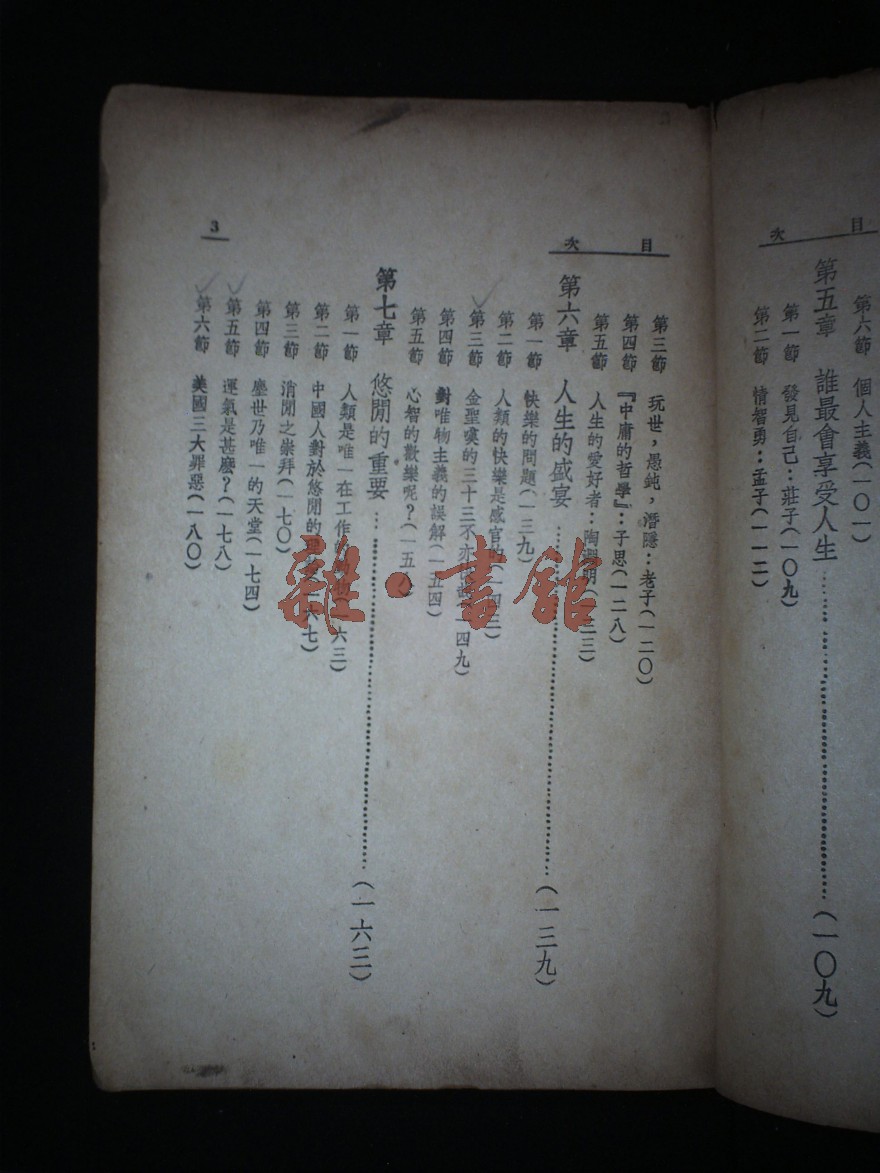 目 次
第六節 個人主義(一〇一)
第五章 誰最會享受人生……(一〇九)
第一節 發見自己：莊子(一〇九)
第二節 情智勇：孟子(一一二)
目 次
第三節 玩世，愚鈍，潛隱：老子(一二〇)
第四節 『中庸的哲學』：子思(一二八)
第五節 人生的愛好者：陶淵明(一三三)
第六章 人生的盛宴……(一三九)
第一節 快樂的問題(一三九)
第二節 人類的快樂是感官的(一四三)
第三節 金聖嘆的三十三不亦快哉(一四九)
第四節 對唯物主義的誤解(一五四)
第五節 心智的歡樂呢？(一五
第七章 悠閒的重要……(一六三)
第一節 人類是唯一在工作的動物(一六三)
第二節 中國人對於悠閒的 一六七)
第三節 消閒之崇拜(一七〇)
第四節 塵世乃唯一的天堂(一七四)
第五節 運氣是甚麽？(一七八)
第六節 美國三大罪惡(一八〇)
3
雜·書館